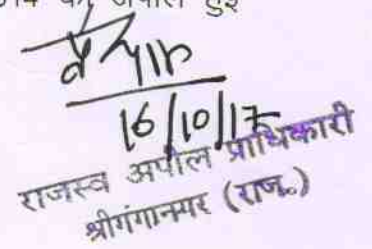 अपील हुई
16/10/17
राजस्व अपील प्राधिकारी
श्रीगंगानगर (राज०)